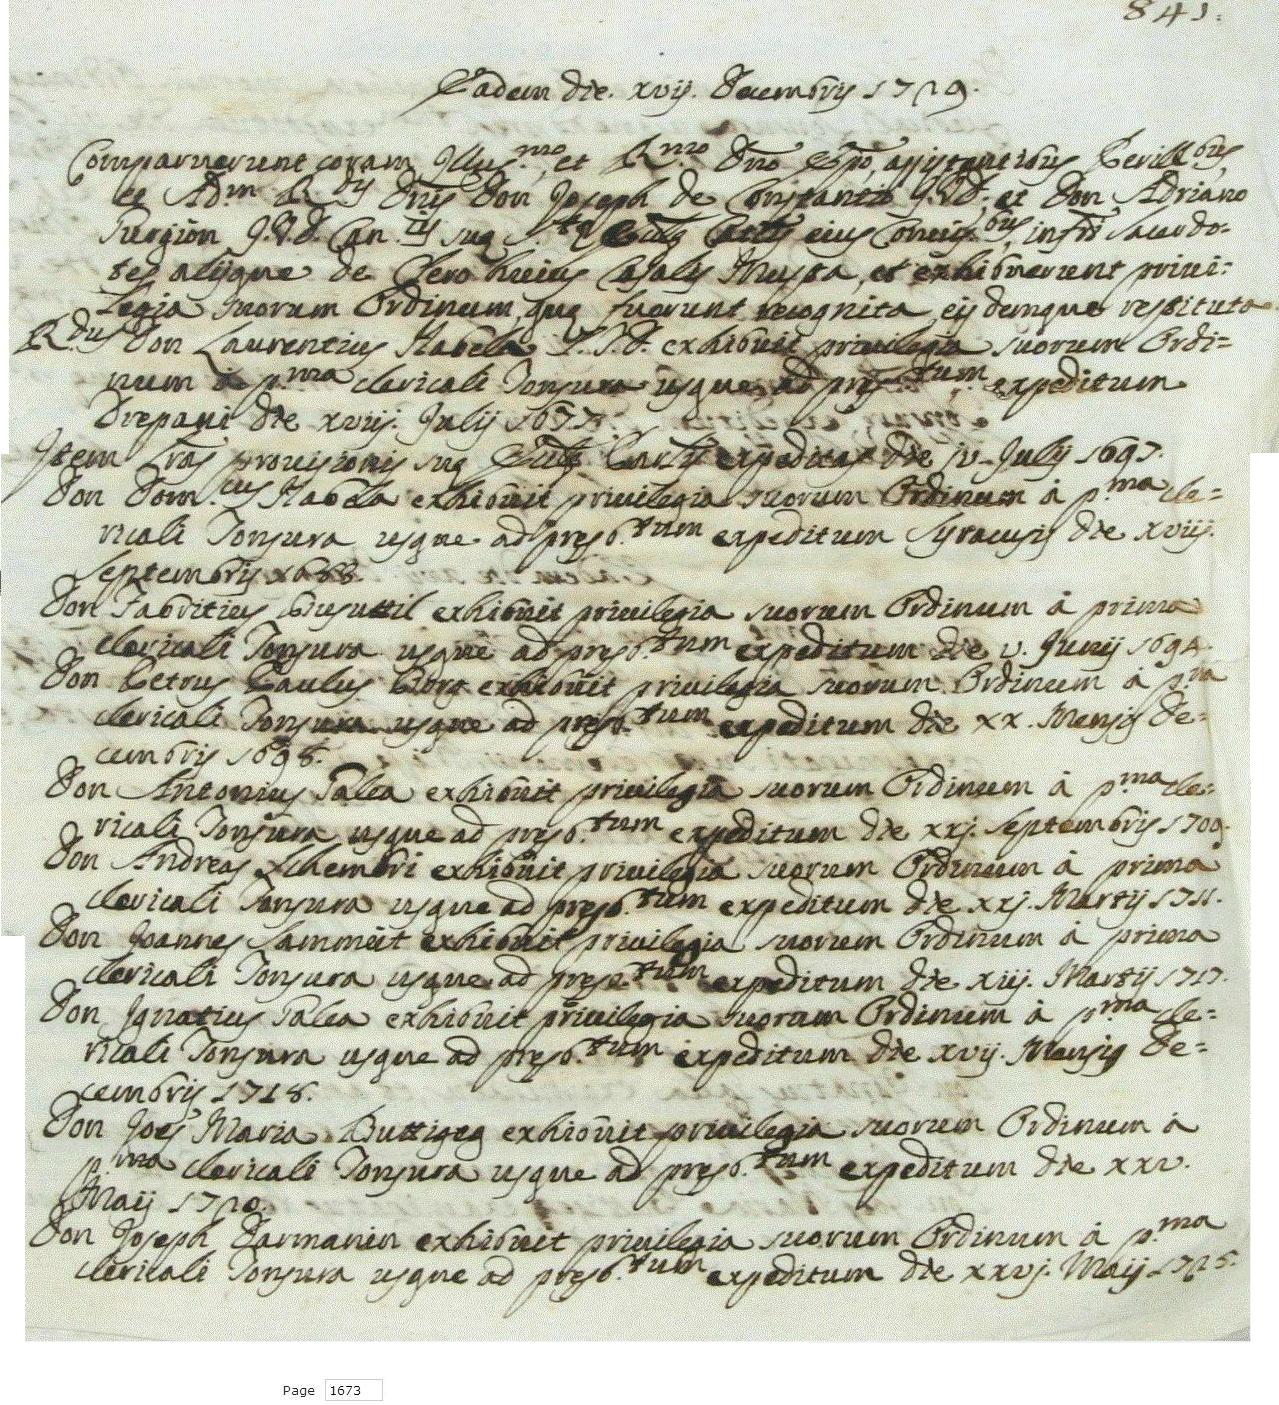 841.
Eadem die. xvij. Decembris 1729.
Comparuerunt coram Illus.mo, et R.mo Dno Espo, assistentibus
et Adm R.dis Dnis Don Joseph de Constanzo J.V.D. et Don Adriano
J.V.D. Can.cis suæ eius infrī Sacerdo-
tes alijque de Clero huius Casalis Musta, et exhibuerunt priui=
legia suorum Ordinum, quæ fuerunt recognita, eisdemque restituta
R.dus Don Laurentius Habela S.T.D. exhibuit priuilegia suorum Ordi=
num à p.ma clericali Tonsura usque ad presb.tum expeditum
Drepani die xviij. Julij 1677.
Item Lras prouisionis suæ expeditas die iv. Julij 1697.
Don Dom.cus Habela exhibuit priuilegia suorum Ordinum à p.ma cle=
ricali Tonsura usque ad presb.tum expeditum Syracusis die xviij.
Septembris 1688
Don Fabritius Busuttil exhibuit priuilegia suorum Ordinum à prima
clericali Tonsura usque ad presb.tum expeditum die v. Junij 1694.
Don Petrus Paulus Borg exhibuit priuilegia suorum Ordinum à p.ma
clericali Tonsura usque ad presb.tum expeditum die xx. Mensis De=
cembris 1698.
Don Antonius Galea exhibuit priuilegia suorum Ordinum à p.ma cle=
ricali Tonsura usque ad presb.tum expeditum die xxj. Septembris 1709.
Don Andreas Schembri exhibuit priuilegia suorum Ordinum à prima
clericali Tonsura usque ad presb.tum expeditum die xxj. Martij 1711.
Don Joannes Sammut exhibuit priuilegia suorum Ordinum à prima
clericali Tonsura usque ad presb.tum expeditum die xiij. Martij 1717.
Don Ignatius Galea exhibuit priuilegia suorum Ordinum à p.ma cle=
ricali Tonsura usque ad presb.tum expeditum die xvij. Mensis De=
cembris 1718.
Don Joēs Maria Buttigeg exhibuit priuilegia suorum Ordinum à
p.ma clericali Tonsura usque ad presb.tum expeditum die xxv.
Maij 1720.
Don Joseph Darmanin exhibuit priuilegia suorum Ordinum à p.ma
clericali Tonsura usque ad presb.tum expeditum die xxvj. Maij 1725.
Page 1673